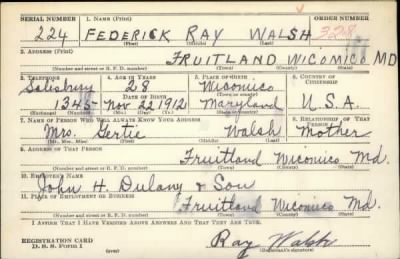 SERIAL NUMBER 1. NAME (Print) ORDER NUMBER
224 FEDERICK RAY WALSH 328
(First) (Middle) (Last)
2. ADDRESS (Print)
FRUITLAND WICOMICO MD
(Number and street or R. F. D. number) (Town) (County) (State)
3. TELEPHONE 4. AGE IN YEARS 5. PLACE OF BIRTH 6. COUNTRY OF CITIZENSHIP
Salesbury 28 Wicomico
DATE OF BIRTH
1345 Nov 22 1912 Maryland U.S.A.
(Exchange) (Number) (Mo.) (Day) (Yr.) (State or country)
7. NAME OF PERSON WHO WILL ALWAYS KNOW YOUR ADDRESS 8. RELATIONSHIP OF THAT PERSON
Mrs. Gertie Walsh Mother
(Mr., Mrs., Miss) (First) (Middle) (Last)
9. ADDRESS OF THAT PERSON
Fruitland Wicomico Md.
(Number and street or R. F. D. number) (Town) (County) (State)
10. EMPLOYER'S NAME
John H. Dulany & Son
11. PLACE OF EMPLOYMENT OR BUSINESS
Fruitland Wicomico Md.
(Number and street or R. F. D. number) (Town) (County) (State)
I AFFIRM THAT I HAVE VERIFIED ABOVE ANSWERS AND THAT THEY ARE TRUE.
REGISTRATION CARD
D. S. S. FORM 1 (over) Ray Walsh
(Registrant's signature)